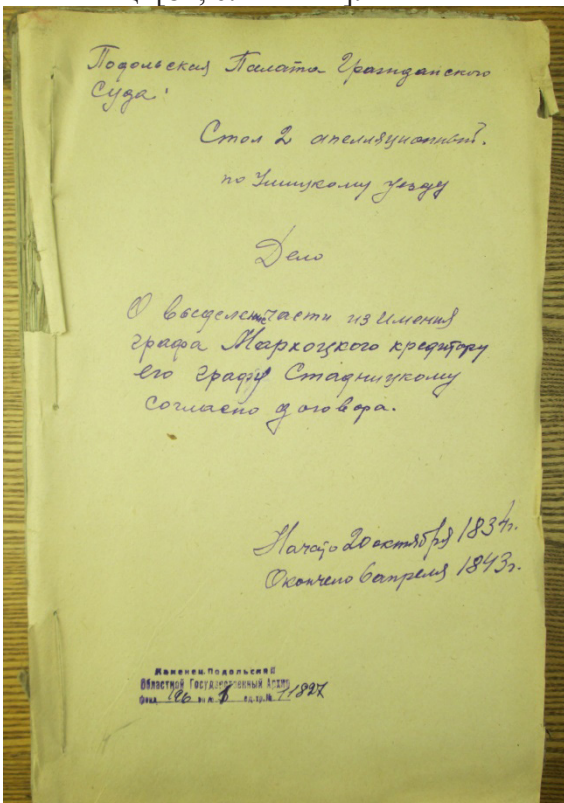 Подольская Палата Гражданского
Суда:
Стол 2 апелляционный.
по Ушицкому уезду
Дело
О выделении части из имения
графа Мархоцкого кредитору
его графу Стадницкому
согласно договора.
Начато 20 октября 1834г.
Окончено 6 апреля 1843г.
Каменец-Подольский
Областной Государственный Архив
Фонд 196 оп. № 1 ед.хр.№ 11827